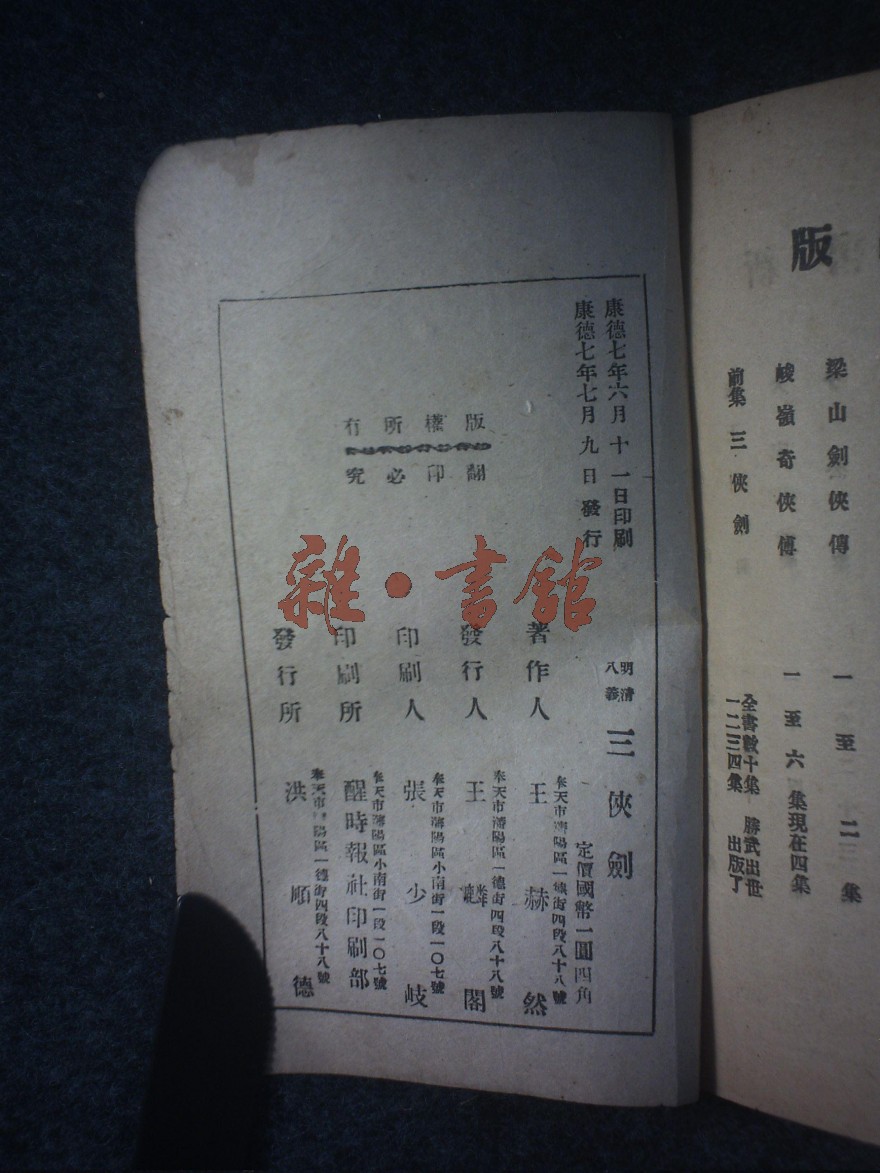 版
梁山劍俠傳
一至二三集
峻嶺奇俠傳
一至六集現在四集
前集三俠劍
全書數十集 勝武出世
一二三四集 出版了
康德七年六月十一日印刷
康德七年七月九日發行
版權所有
翻印必究
明清
八義
三俠劍
定價國幣一圓四角
著作人
奉天市瀋陽區一德街四段八十八號
王赫然
發行人
奉天市瀋陽區一德街四段八十八號
王麟閣
印刷人
奉天市瀋陽區小南街一段一〇七號
張少岐
印刷所
奉天市瀋陽區小南街一段一〇七號
醒時報社印刷部
發行所
奉天市瀋陽區一德街四段八十八號
洪順德
雜·書館